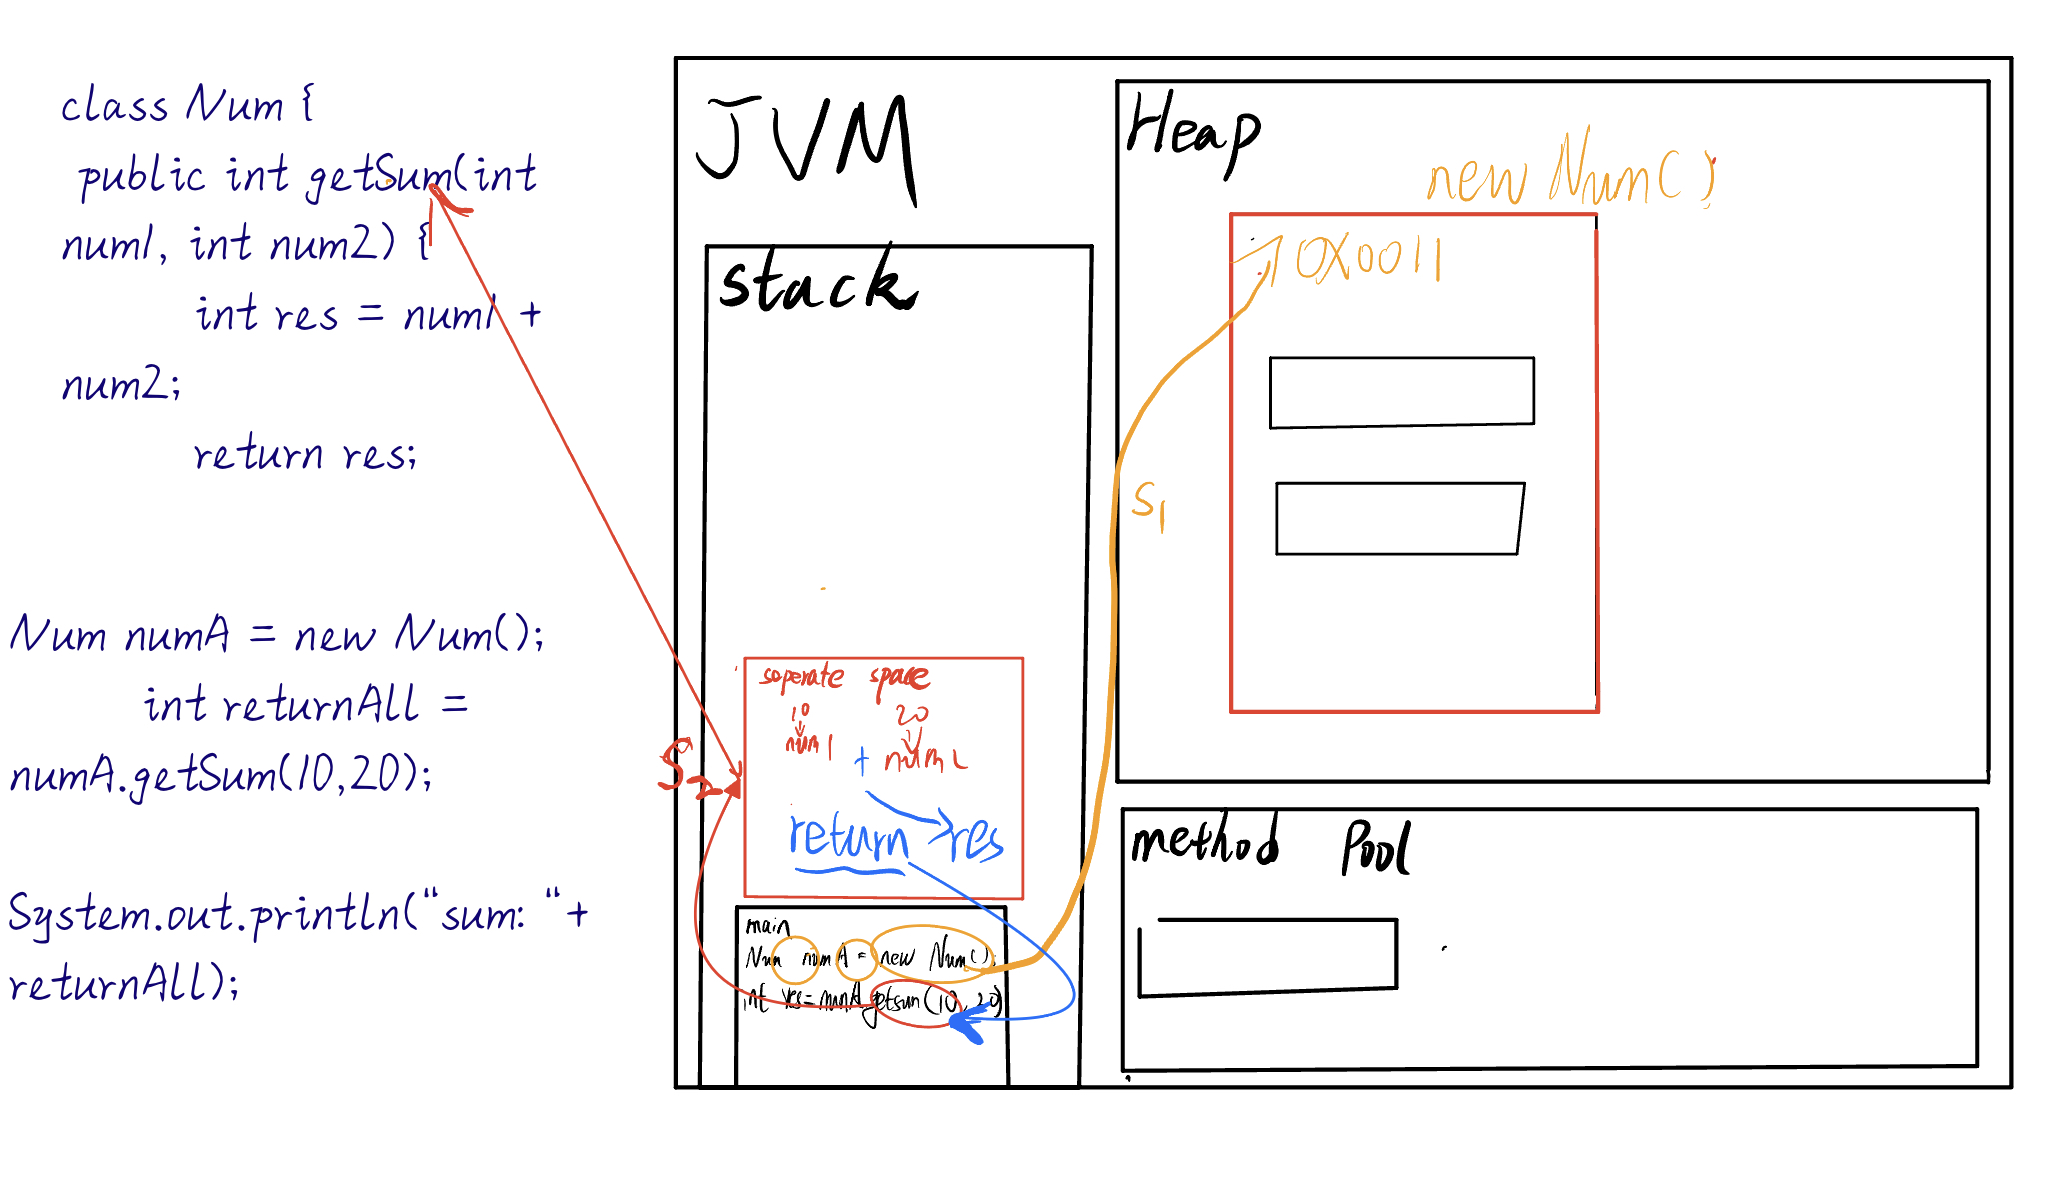 class Num {
public int getSum(int
num1, int num2) {
int res = num1 +
num2;
return res;
Num numA = new Num();
int returnAll =
numA.getSum(10,20);
System.out.println("sum: "+
returnAll);
JVM
stack
soperate space
10 20
num1 + num2
return res
S2
main
Num numA = new Num();
int res = numA getsum(10,20)
Heap
new Num()
0X0011
S1
method Pool